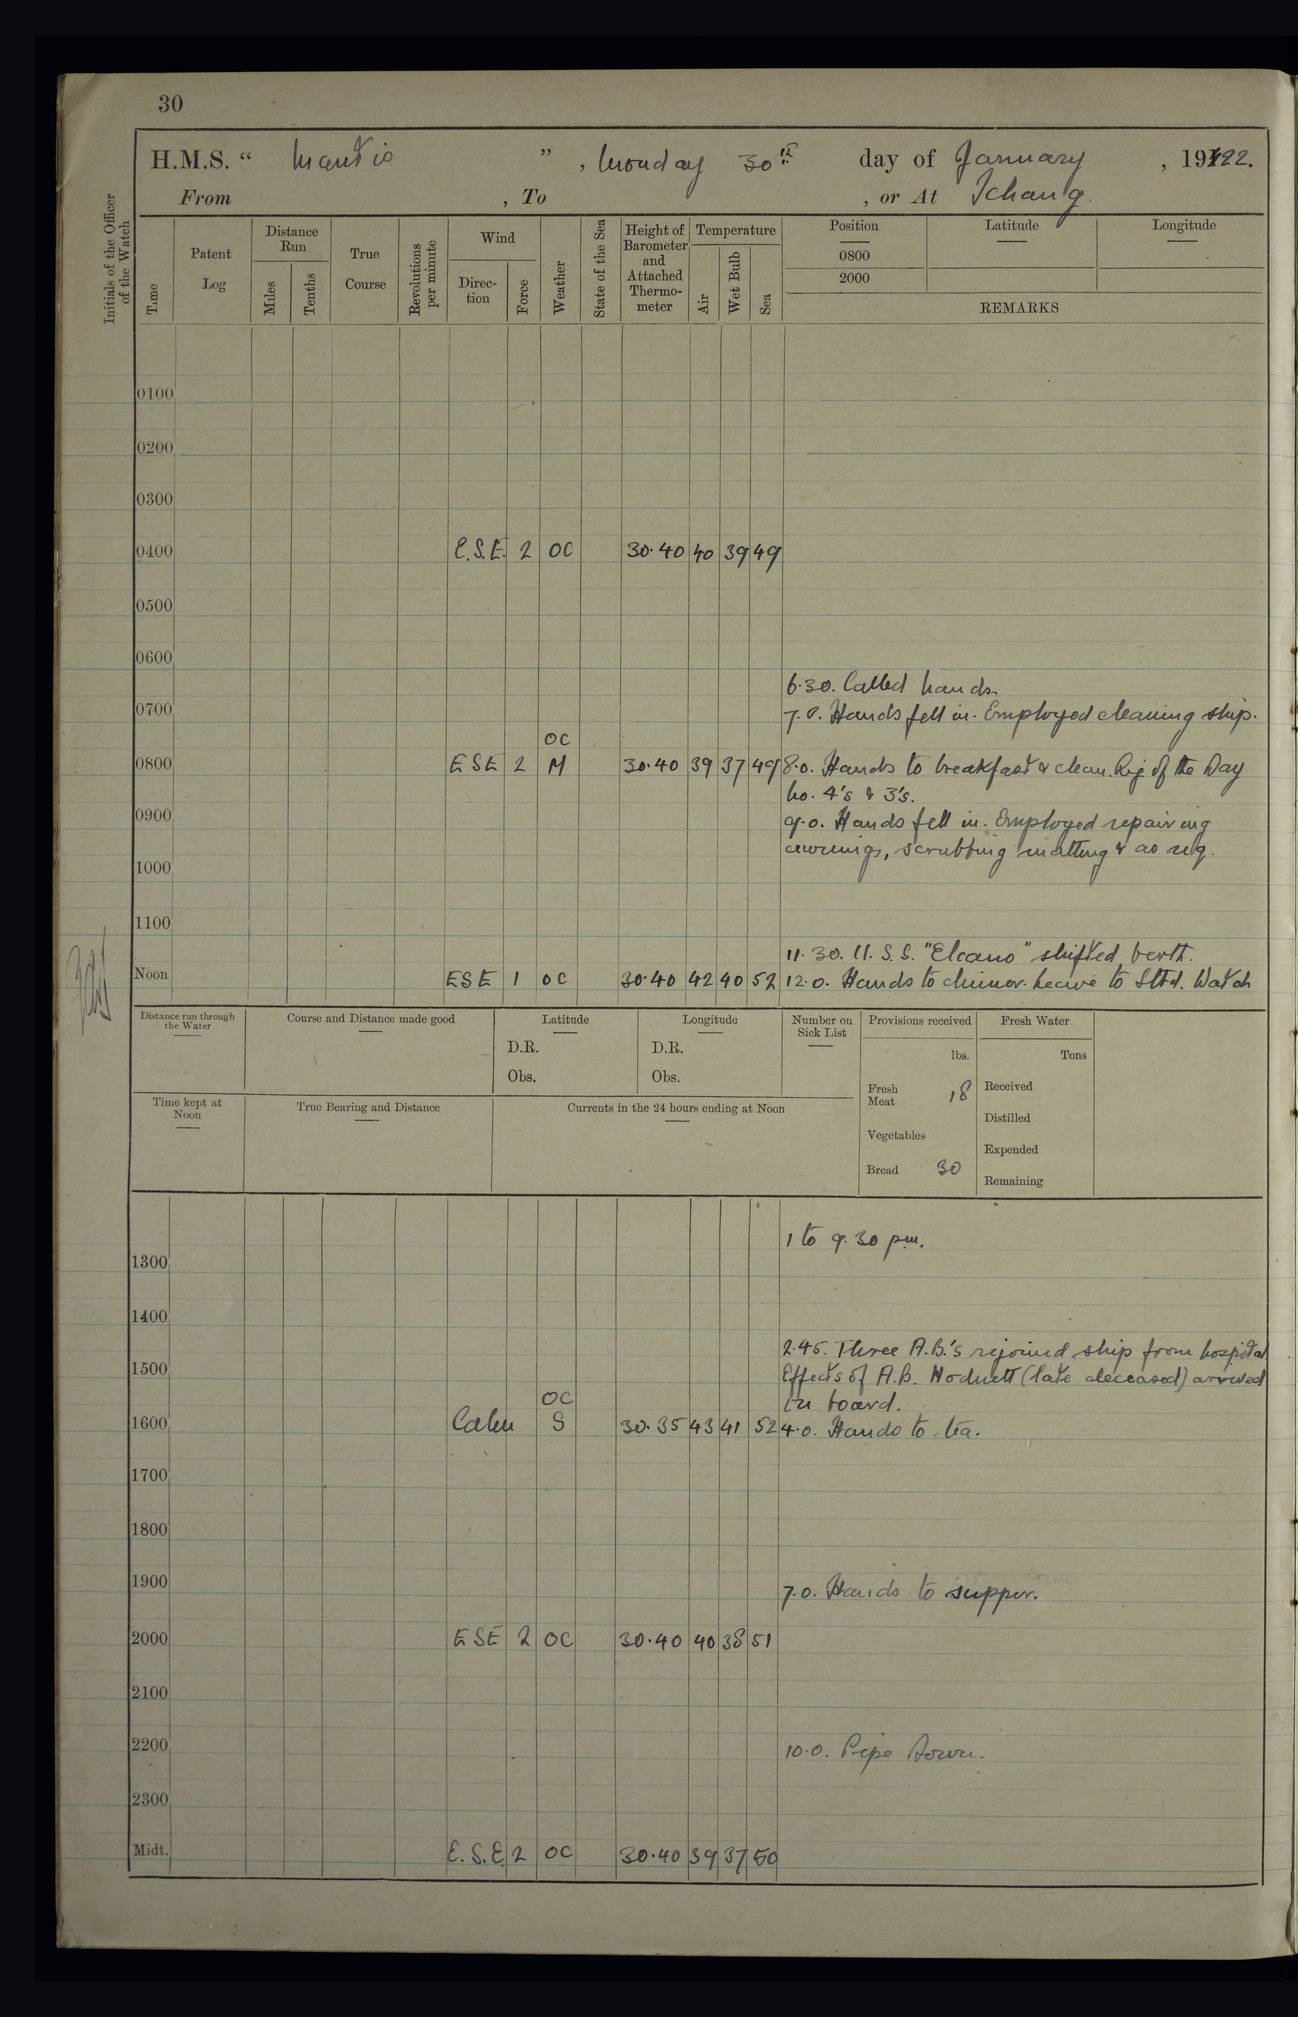 30
H.M.S. “ Mantis ” , Monday 30th day of January , 1922.
From , To , or At Ichang.
Initials of the Officer of the Watch
Time
Patent Log
Distance Run
Miles
Tenths
True Course
Revolutions per minute
Wind
Direc-tion
Force
Weather
State of the Sea
Height of Barometer and Attached Thermo-meter
Temperature
Air
Wet Bulb
Sea
Position
0800
2000
Latitude
Longitude
REMARKS
0100
0200
0300
0400 E.S.E. 2 OC 30.40 40 39 49
0500
0600
6.30. Called hands.
0700 7.0. Hands fell in. Employed cleaning ship.
OC
0800 ESE 2 M 30.40 39 37 49 8.0. Hands to breakfast & clean. Rig of the Day
No. 4's & 3's.
0900 9.0. Hands fell in. Employed repairing
awnings, scrubbing matting & as req.
1000
1100
11.30. U.S.S. "Elcano" shifted berth.
Noon ESE 1 OC 30.40 42 40 52 12.0. Hands to dinner. Leave to Stbd. Watch
Distance run through the Water
Course and Distance made good
Latitude
D.R.
Obs.
Longitude
D.R.
Obs.
Number on Sick List
Provisions received
lbs.
Fresh Meat 18
Vegetables
Bread 30
Fresh Water
Tons
Received
Distilled
Expended
Remaining
Time kept at Noon
True Bearing and Distance
Currents in the 24 hours ending at Noon
1 to 9.30 pm.
1300
1400
2.45. Three A.B.'s rejoined ship from hospital
1500 Effects of A.B. Hodnett (late deceased) arrived
OC in board.
1600 Calm S 30.35 43 41 52 4.0. Hands to tea.
1700
1800
1900 7.0. Hands to supper.
2000 ESE 2 OC 30.40 40 38 51
2100
2200 10.0. Pipe Down.
2300
Midt. E.S.E. 2 OC 30.40 39 37 50